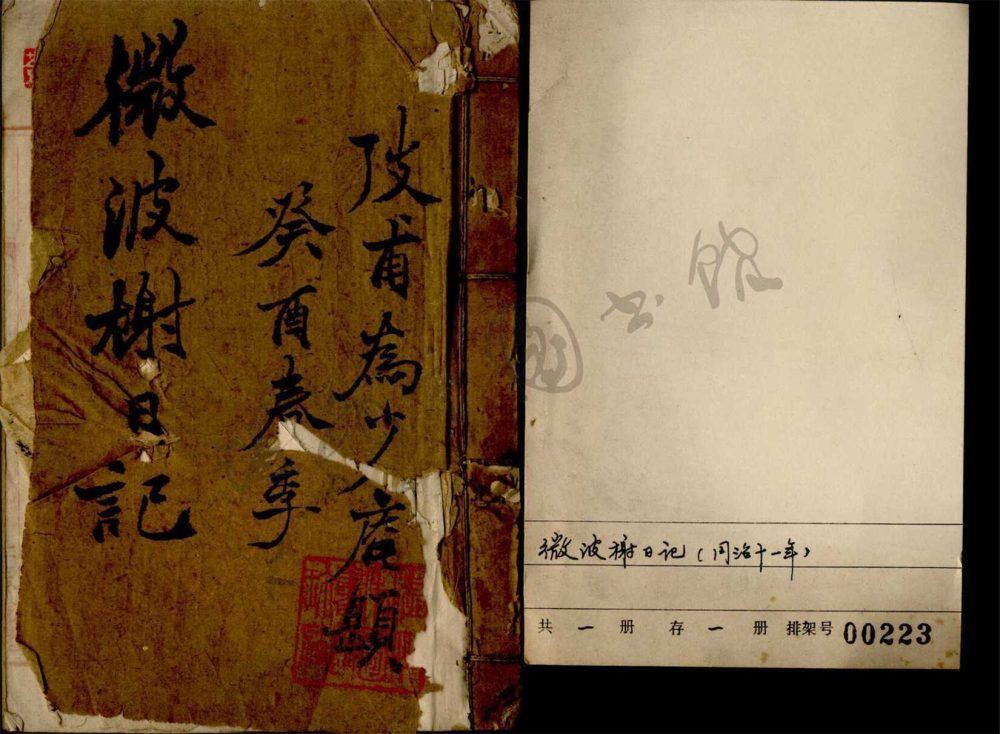 微波榭日記
癸酉春季
陔甫為少唐顯
微波榭日记（同治十一年）
共 一 册 存 一 册 排架号 00223